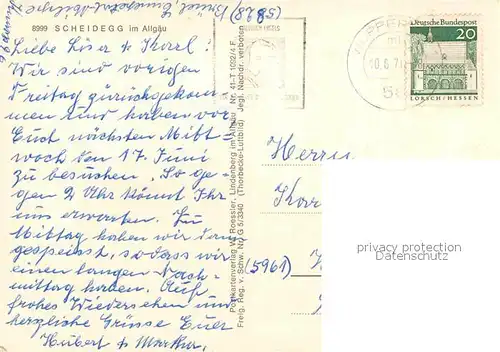 8999 SCHEIDEGG im Allgäu
Liebe Löser & Korrl!
Wir sind vorigen
Freitag zurückgekom-
men und haben vor
Euch nächsten Mitt-
woch den 17. Juni
zu besuchen. So ge-
gen 2 Uhr könnt Ihr
uns erwarten. Zu
Mittag haben wir dann
gespeist, so dass wir
einen langen Nach-
mittag haben. Auf
frohes Wiedersehen und
herzliche Grüsse Euer
Hubert &
(5828)
Postkartenverlag W. Roessler, Lindenberg im Allgäu Nr. 41-T 1002/4 F
Freig. Reg. v. Schw. NO G 5/3340 (Thorbecke-Luftbild) jegl. Nachdr. verboten
WUPPER
10.6.70
Deutsche Bundespost
20
LORSCH/HESSEN
Herrn
(5961)
privacy protection
Datenschutz